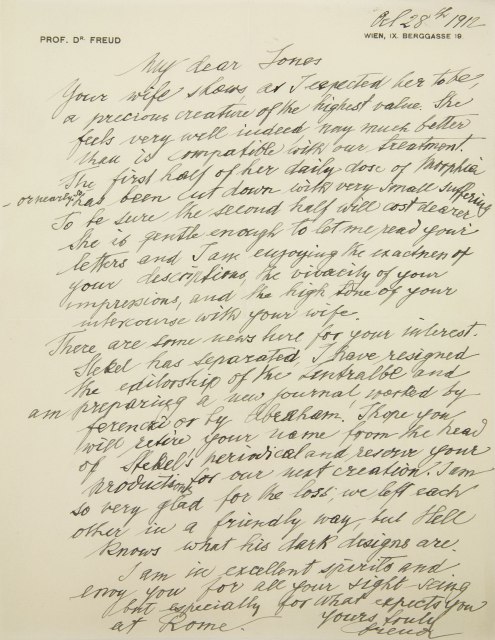 Oct 28th 1912
PROF. DR FREUD
WIEN, IX. BERGGASSE 19.
My dear Jones
Your wife shows, as I expected her to be,
a precious creature of the highest value. She
feels very well indeed nay much better
than is compatible with our treatment.
The first half of her daily dose of Morphia
- or nearly so has been cut down with very small suffering
To be sure the second half will cost dearer
She is gentle enough to let me read your
letters and I am enjoying the exactness of
your descriptions, the vivacity of your
impressions, and the high tone of your
intercourse with your wife.
There are some news here for your interest.
Stekel has separated, I have resigned
the editorship of the Centralbl and
am preparing a new journal worked by
Ferenczi or by Abraham. I hope you
will retire your name from the head
of Stekel's periodical and reserve your
productions for our next creation. I am
so very glad for the loss; we left each
other in a friendly way, but Hell
knows what his dark designs are.
I am in excellent spirits and
envy you for all your sight seing
but especially for what expects you
at Rome. Yours truly
Freud